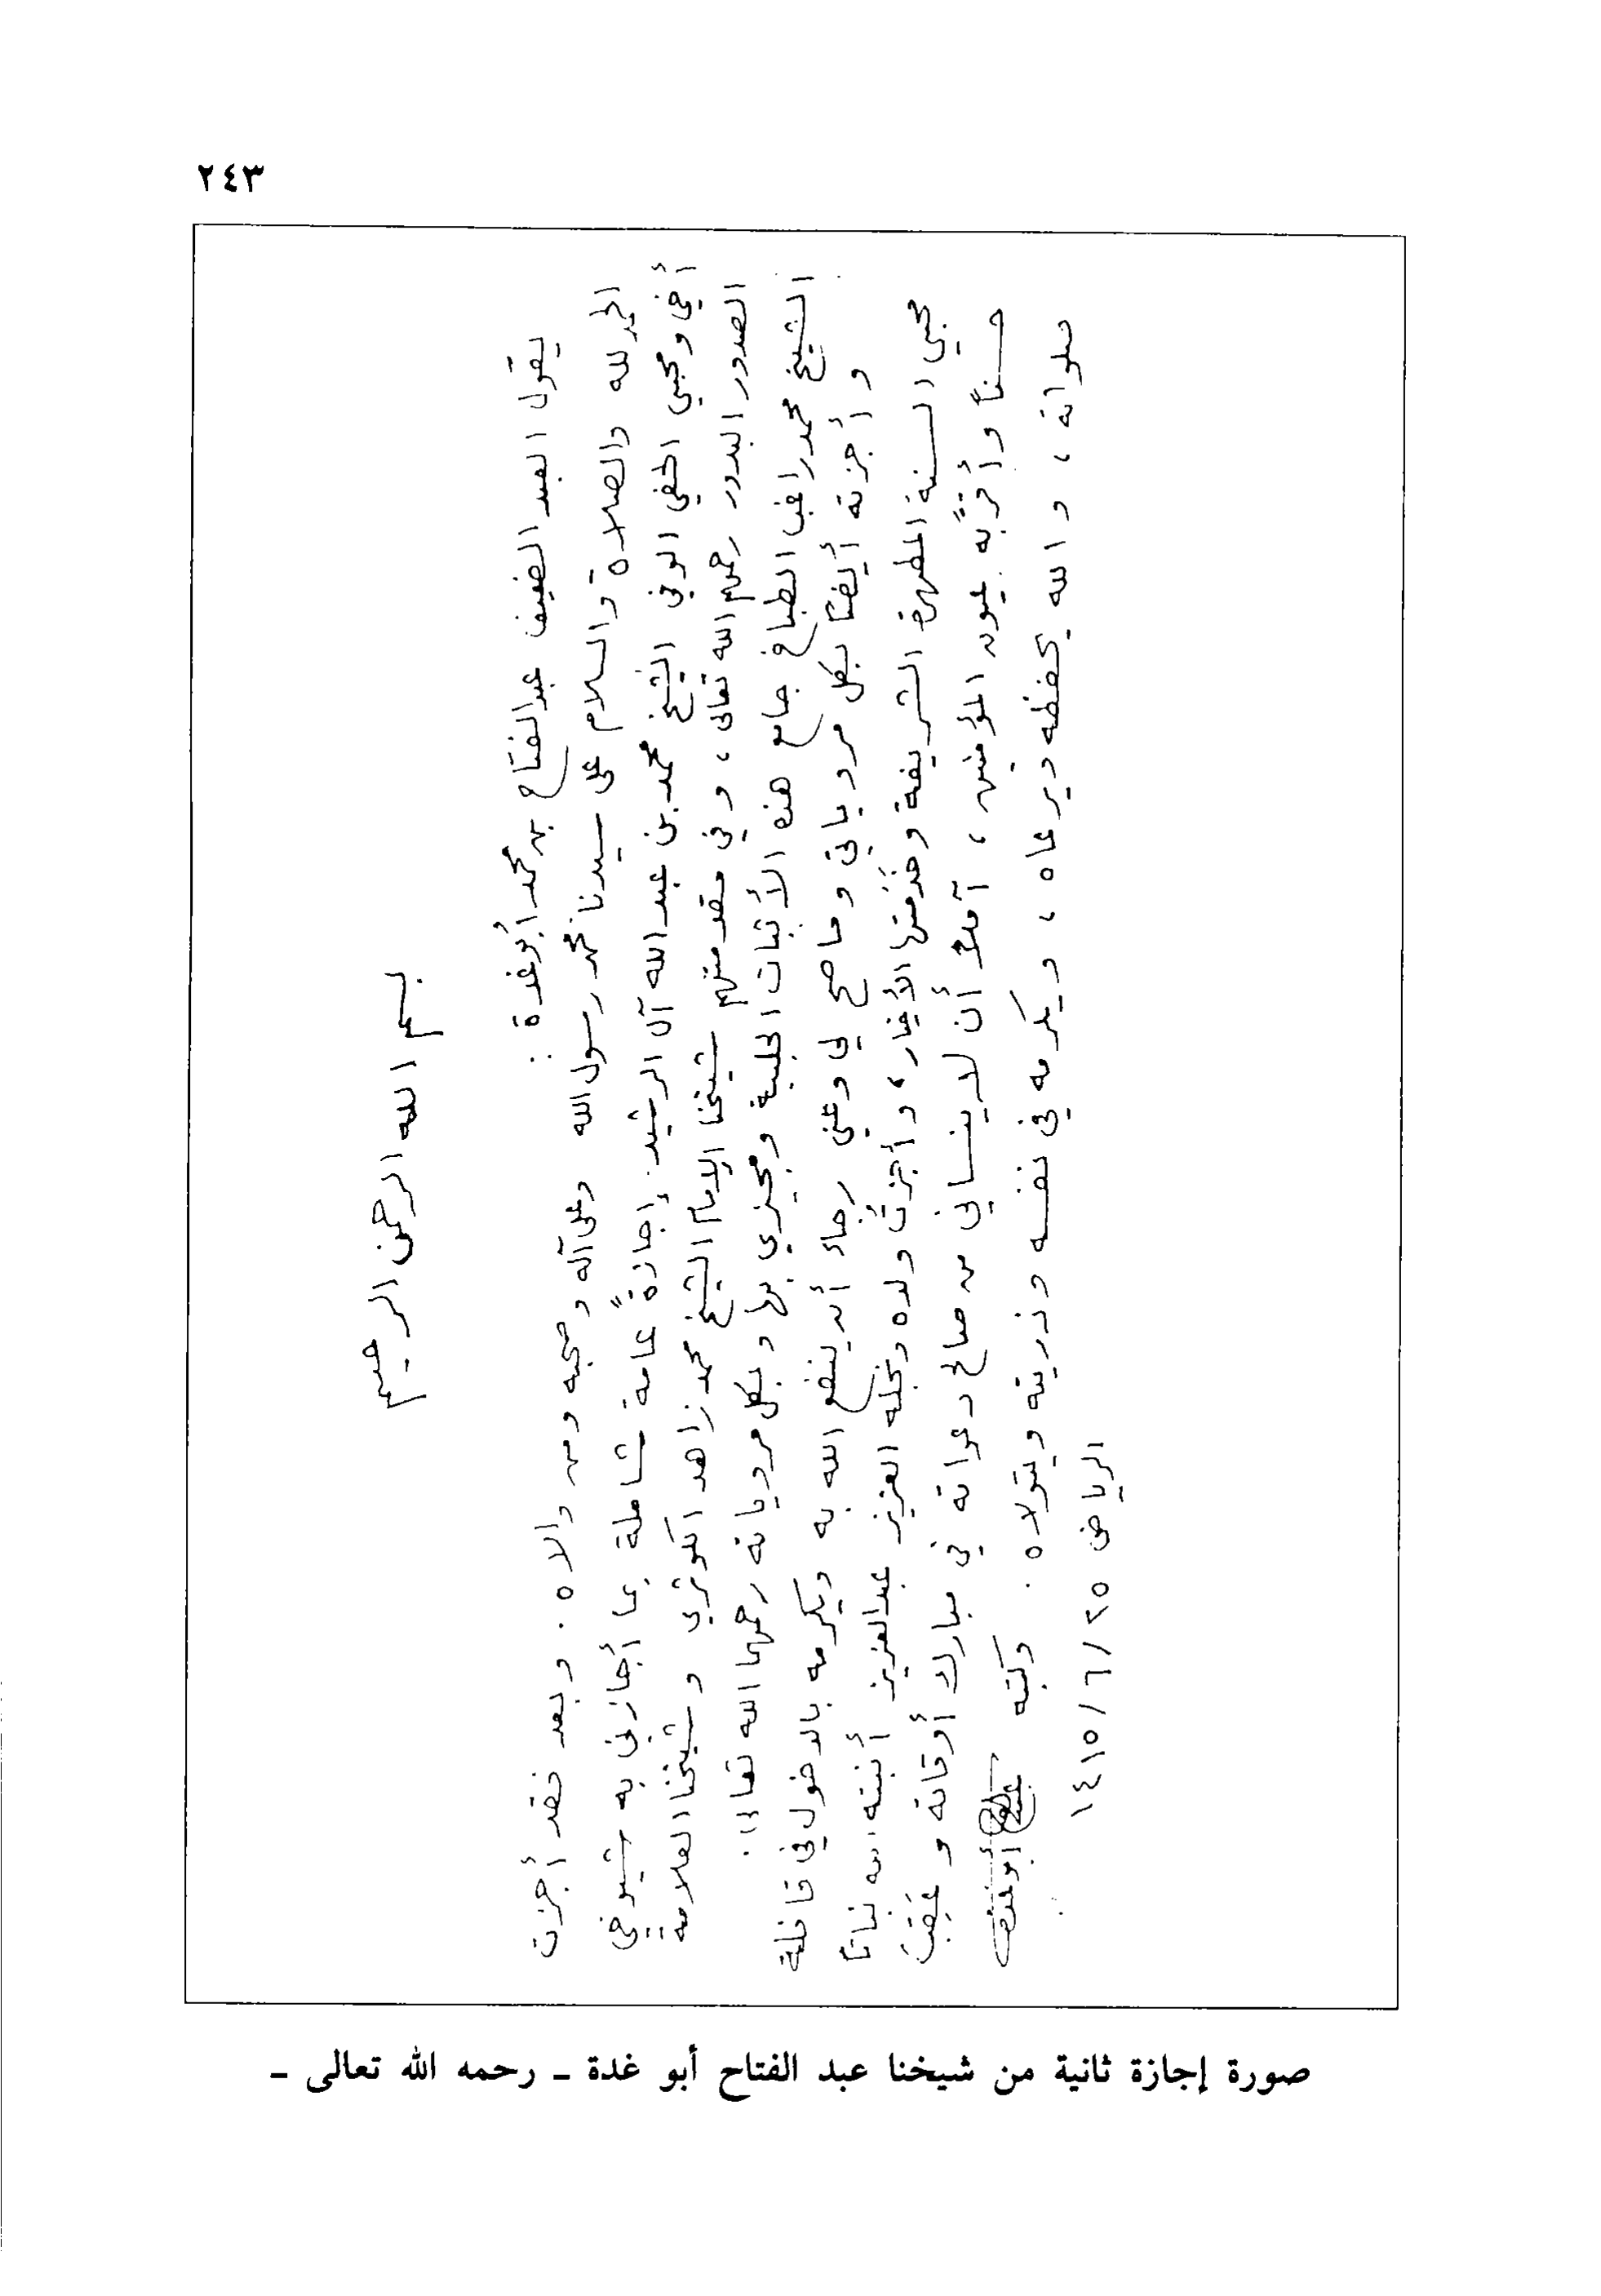 ٢٤٣
بسم الله الرحمن الرحيم
يقول العبد الضعيف عبدالفتاح بن محمد أبوغدة :
الحمد لله والصلاة والسلام على سيدنا محمد رسول الله وعلى آله وصحبه ومن والاه . وبعد فقد أجزت
أخي ومحبي الحفي الوفي الشيخ محمد بن عبد الله آل الرشيد إجازةً عامة شاملة بما أجازني به شيوخي
الصدور البدور رحمهم الله تعالى ، وفي مقدمتهم شيخنا الإمام الشيخ محمد زاهد الكوثري وشيخنا العلامة
الشيخ محمد راغب الطباخ جامع هذه الأثبات الحلبية ومجيزي بها وبكل مروياته رحمهما الله تعالى .
وأجزته أيضًا بكل مروياتي وما صح لي وعني رجاء أن ينفع الله به ويكرمه بالدخول في قافلة
محبي السنة المطهرة الشريفة وخَدَمَتها الأخيار ، وأجزتُ ولده ونجله العزيز عبدالعزيز أنبته الله نباتًا
حسنًا وأقرَّ به عيون المؤمنين ، آملاً أن لا ينساني من صالح دعواته في مبارك أوقاته وعَقِبَ
صلواته ، والله يحفظه ويرعاه ، ويكرمه في نفسه وذريته ويتولاه . وكتبه عبدالفتاح أبوغدة
الرياض ٢٥/٦/١٤١٥
صورة إجازة ثانية من شيخنا عبد الفتاح أبو غدة ـ رحمه الله تعالى ـ